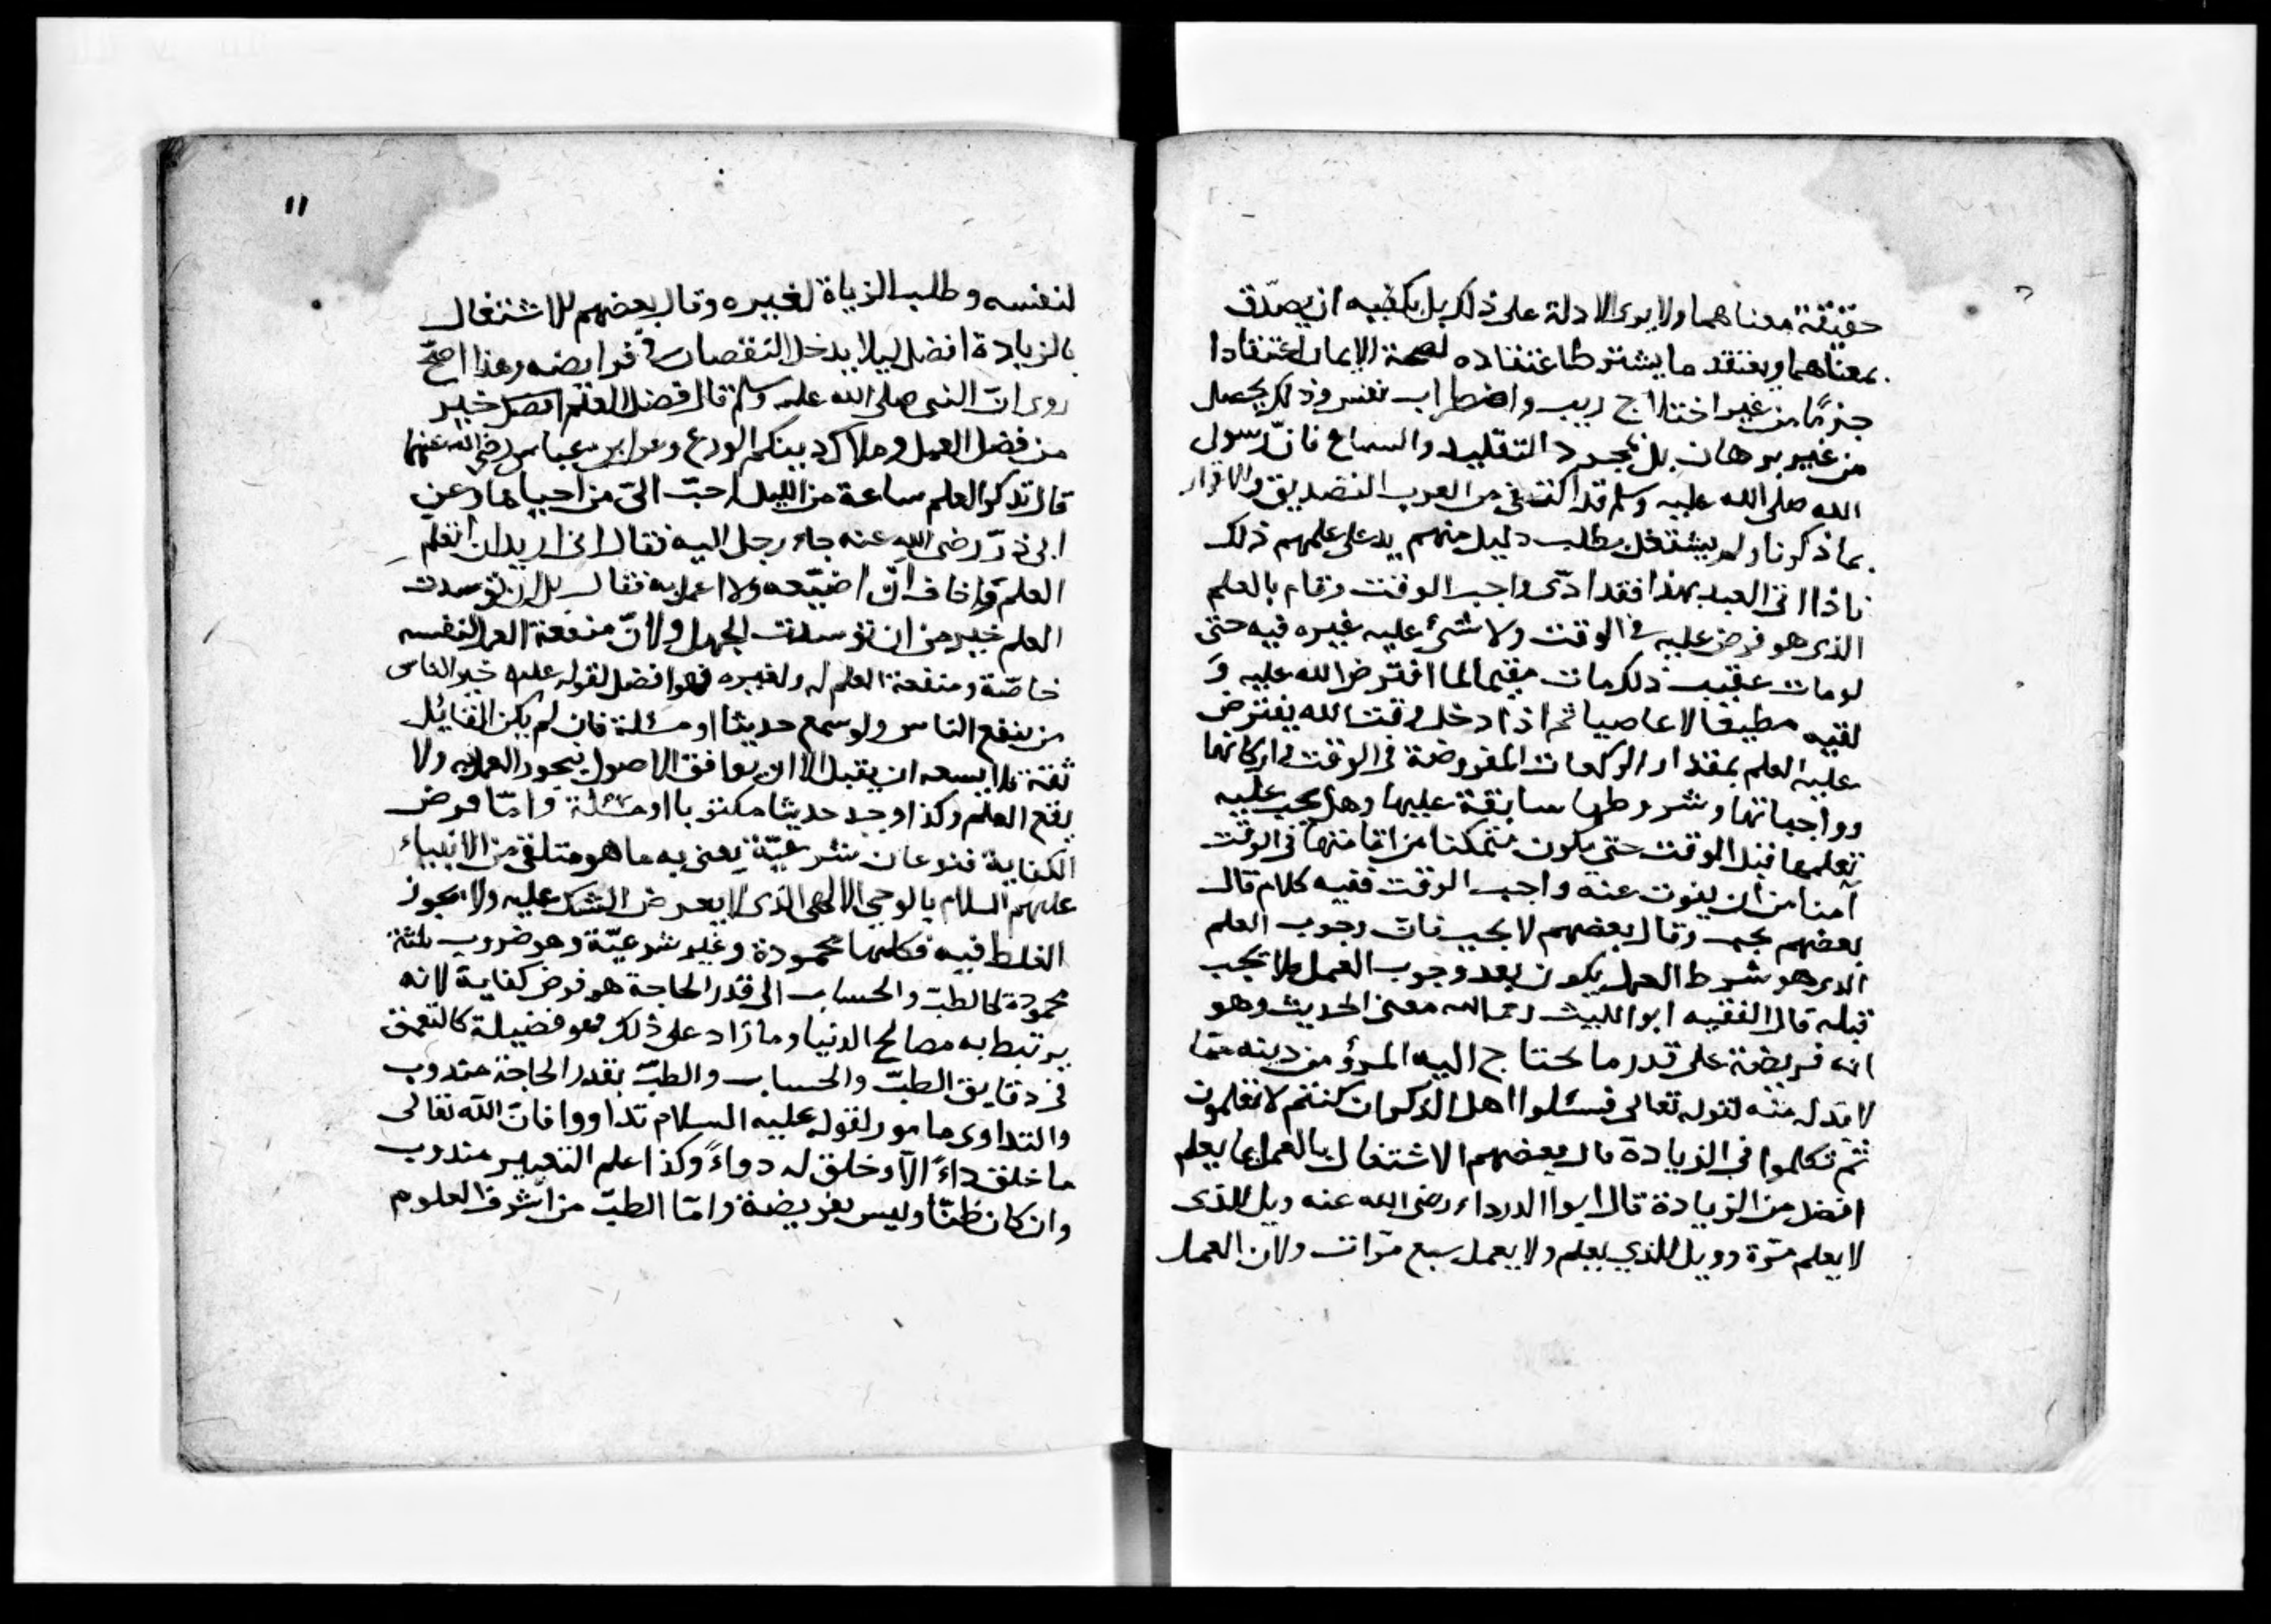 حقيقة معناهما ولا يرى الادلة على ذلك بل يكفيه ان يصدّق
بمعناهما ويعتقد ما يشترط اعتقاده لصحة الايمان اعتقادا
جزمًا من غير اختلاج ريب واضطراب نفس وذلك يحصل
من غير برهان بل بمجرد التقليد والسماع فانّ رسول
الله صلى الله عليه وسلم قد اكتفى من العرب التصديق والاقرار
بما ذكرنا ولم يشتغل بطلب دليل منهم يدل على علمهم ذلك
فاذا اتى العبد بهذا فقد ادّى واجب الوقت وقام بالعلم
الذى هو فرض عليه فى الوقت ولا شئ عليه غيره فيه حتى
لو مات عقيب ذلك مات مقيما لما افترض الله عليه و
لقيه مطيعا لا عاصيا ثم اذا دخل وقت الله يفترض
عليه العلم بمقدار الركعات المفروضة فى الوقت فى اركانها
وواجباتها وشروطها سابقة عليها وهل يجب عليه
تعلمها قبل الوقت حتى يكون متمكنا من اقامتها فى الوقت
آمنا من ان يفوت عنه واجب الوقت ففيه كلام قال
بعضهم يجب وقال بعضهم لا يجب فان وجوب العلم
الذى هو شرط العمل يكون بعد وجوب العمل فلا يجب
قبله قال الفقيه ابو الليث رحمه الله معنى الحديث وهو
انه فريضة على قدر ما يحتاج اليه المرؤ من دينه ممّا
لا بد له منه لقوله تعالى فسئلوا اهل الذكر ان كنتم لا تعلمون
ثم تكلموا فى الزيادة قال بعضهم الاشتغال بالعمل بما يعلم
افضل من الزيادة قال ابوا الدرداء رضى الله عنه ويل للذى
لا يعلم مرّة وويل للذي يعلم ولا يعمل سبع مرّات ولان العمل
١١
لنفسه وطلب الزياة لغيره وقال بعضهم للاشتغال
بالزيادة افضل ليلا يدخل النقصان فى فرايضه وهذا اصحّ
روى انّ النبى صلى الله عليه وسلم قال فضل العلم افضل خير
من فضل العمل وملاك دينكم الورع وعن ابن عباس رضى الله عنهما
قال تذكر العلم ساعة من الليل احبّ الىّ من احيائها وعن
ابى ذرّ رضى الله عنه جاء رجل اليه فقال انى اريد ان اتعلّم
العلم واخاف انّ اضيّعه ولا اعمل به فقال بل ان توسدت
العلم خير من ان توسدت الجهل ولانّ منفعة العمل لنفسه
خاصّة ومنفعة العلم له ولغيره فهو افضل لقوله عليه خير الناس
من ينفع الناس ولو سمع حديثا او مسئلة فان لم يكن القائل
ثقة فلا يسعه ان يقبل الا ان يوافق الاصول فيجوز العمل به ولا
يقع العلم وكذا وجد حديثا مكتوبا او مسئلة وامّا فرض
الكفاية فنوعان شرعيّة يعنى به ما هو متلقى من الانبياء
عليهم السلام بالوحي الالهى الذى لا يعرض الشك عليه ولا يجوز
الغلط فيه فكلها محمودة وغير شرعيّة وهو ضروب ثلثة
محمودة كالطبّ والحساب الى قدر الحاجة هو فرض كفاية لانه
يرتبط به مصالح الدنيا وما زاد على ذلك فهو فضيلة كالتعمق
فى دقايق الطبّ والحساب والطبّ بقدر الحاجة مندوب
والتداوى مامور لقوله عليه السلام تداووا فانّ الله تعالى
ما خلق داءً الاّ وخلق له دواءً وكذا علم التعبير مندوب
وان كان ظنّا وليس بفريضة وامّا الطبّ من اشرف العلوم